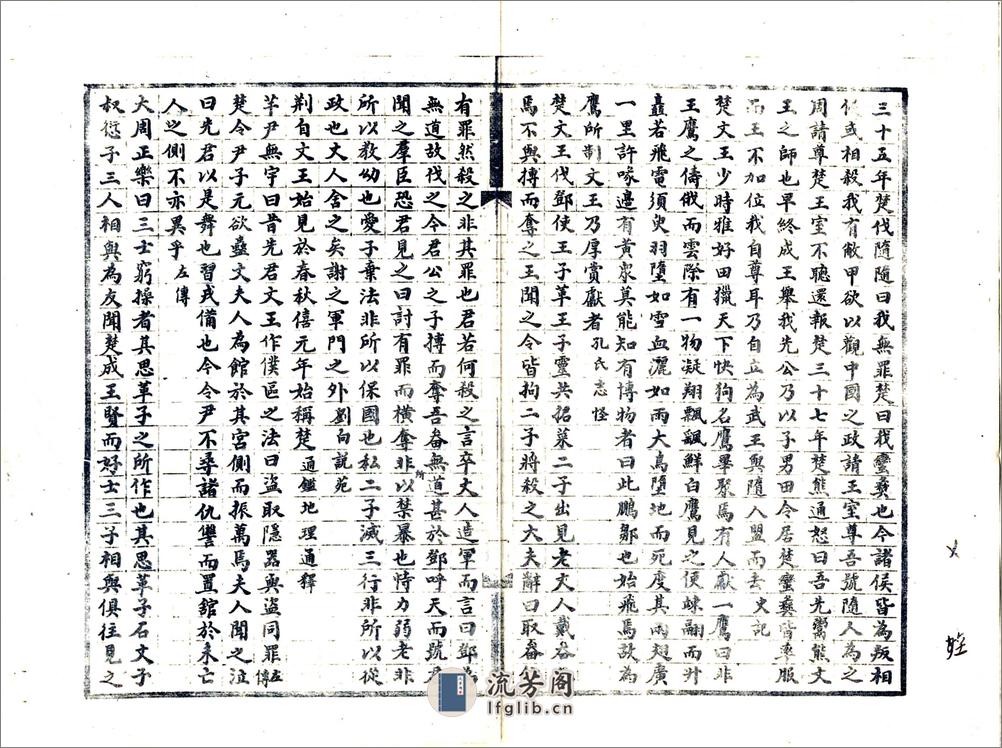 三十五年楚伐隨隨曰我無罪楚曰我蠻彝也今諸侯皆為叛相
侵或相殺我有敝甲欲以觀中國之政請王室尊吾號隨人為之
周請尊楚王室不聽還報楚三十七年楚熊通怒曰吾先鬻熊文
王之師也早終成王舉我先公乃以子男田令居楚蠻彝皆率服
而王不加位我自尊耳乃自立為武王與隨人盟而去史記
楚文王少時雅好田獵天下快狗名鷹畢聚焉有人獻一鷹曰非
王鷹之儔俄而雲際有一物凝翔飄颻鮮白鷹見之便竦翮而升
矗若飛電須臾羽墮如雪血灑如雨大鳥墮地而死度其兩翅廣
一里許喙邊有黃衆莫能知有博物者曰此鵬鶵也始飛焉故為
鷹所制文王乃厚賞獻者孔氏志怪
楚文王伐鄧使王子革王子靈共捃菜二子出見老丈人戴畚
焉不與搏而奪之王聞之令皆拘二子將殺之大夫辭曰取畚信
有罪然殺之非其罪也君若何殺之言卒丈人造軍而言曰鄧為
無道故伐之今君公之子搏而奪吾畚無道甚於鄧呼天而號君
聞之羣臣恐君見之曰討有罪而橫奪非所以禁暴也恃力弱老非
所以教幼也愛子棄法非所以保國也私二子滅三行非所以從
政也丈人舍之矣謝之軍門之外劉向說苑
荆自文王始見於春秋僖元年始稱楚通鑑地理通釋
芊尹無宇曰昔先君文王作僕區之法曰盜取隱器與盜同罪左傳
楚令尹子元欲蠱文夫人為館於其宮側而振萬焉夫人聞之泣
曰先君以是舞也習戎備也今令尹不尋諸仇讐而置舘於未亡
人之側不亦異乎左傳
大周正樂曰三士窮操者其思革子之所作也其思革子石文子
叔愆子三人相與為友聞楚成王賢而好士三子相與俱往見之
流芳阁
lfglib.cn